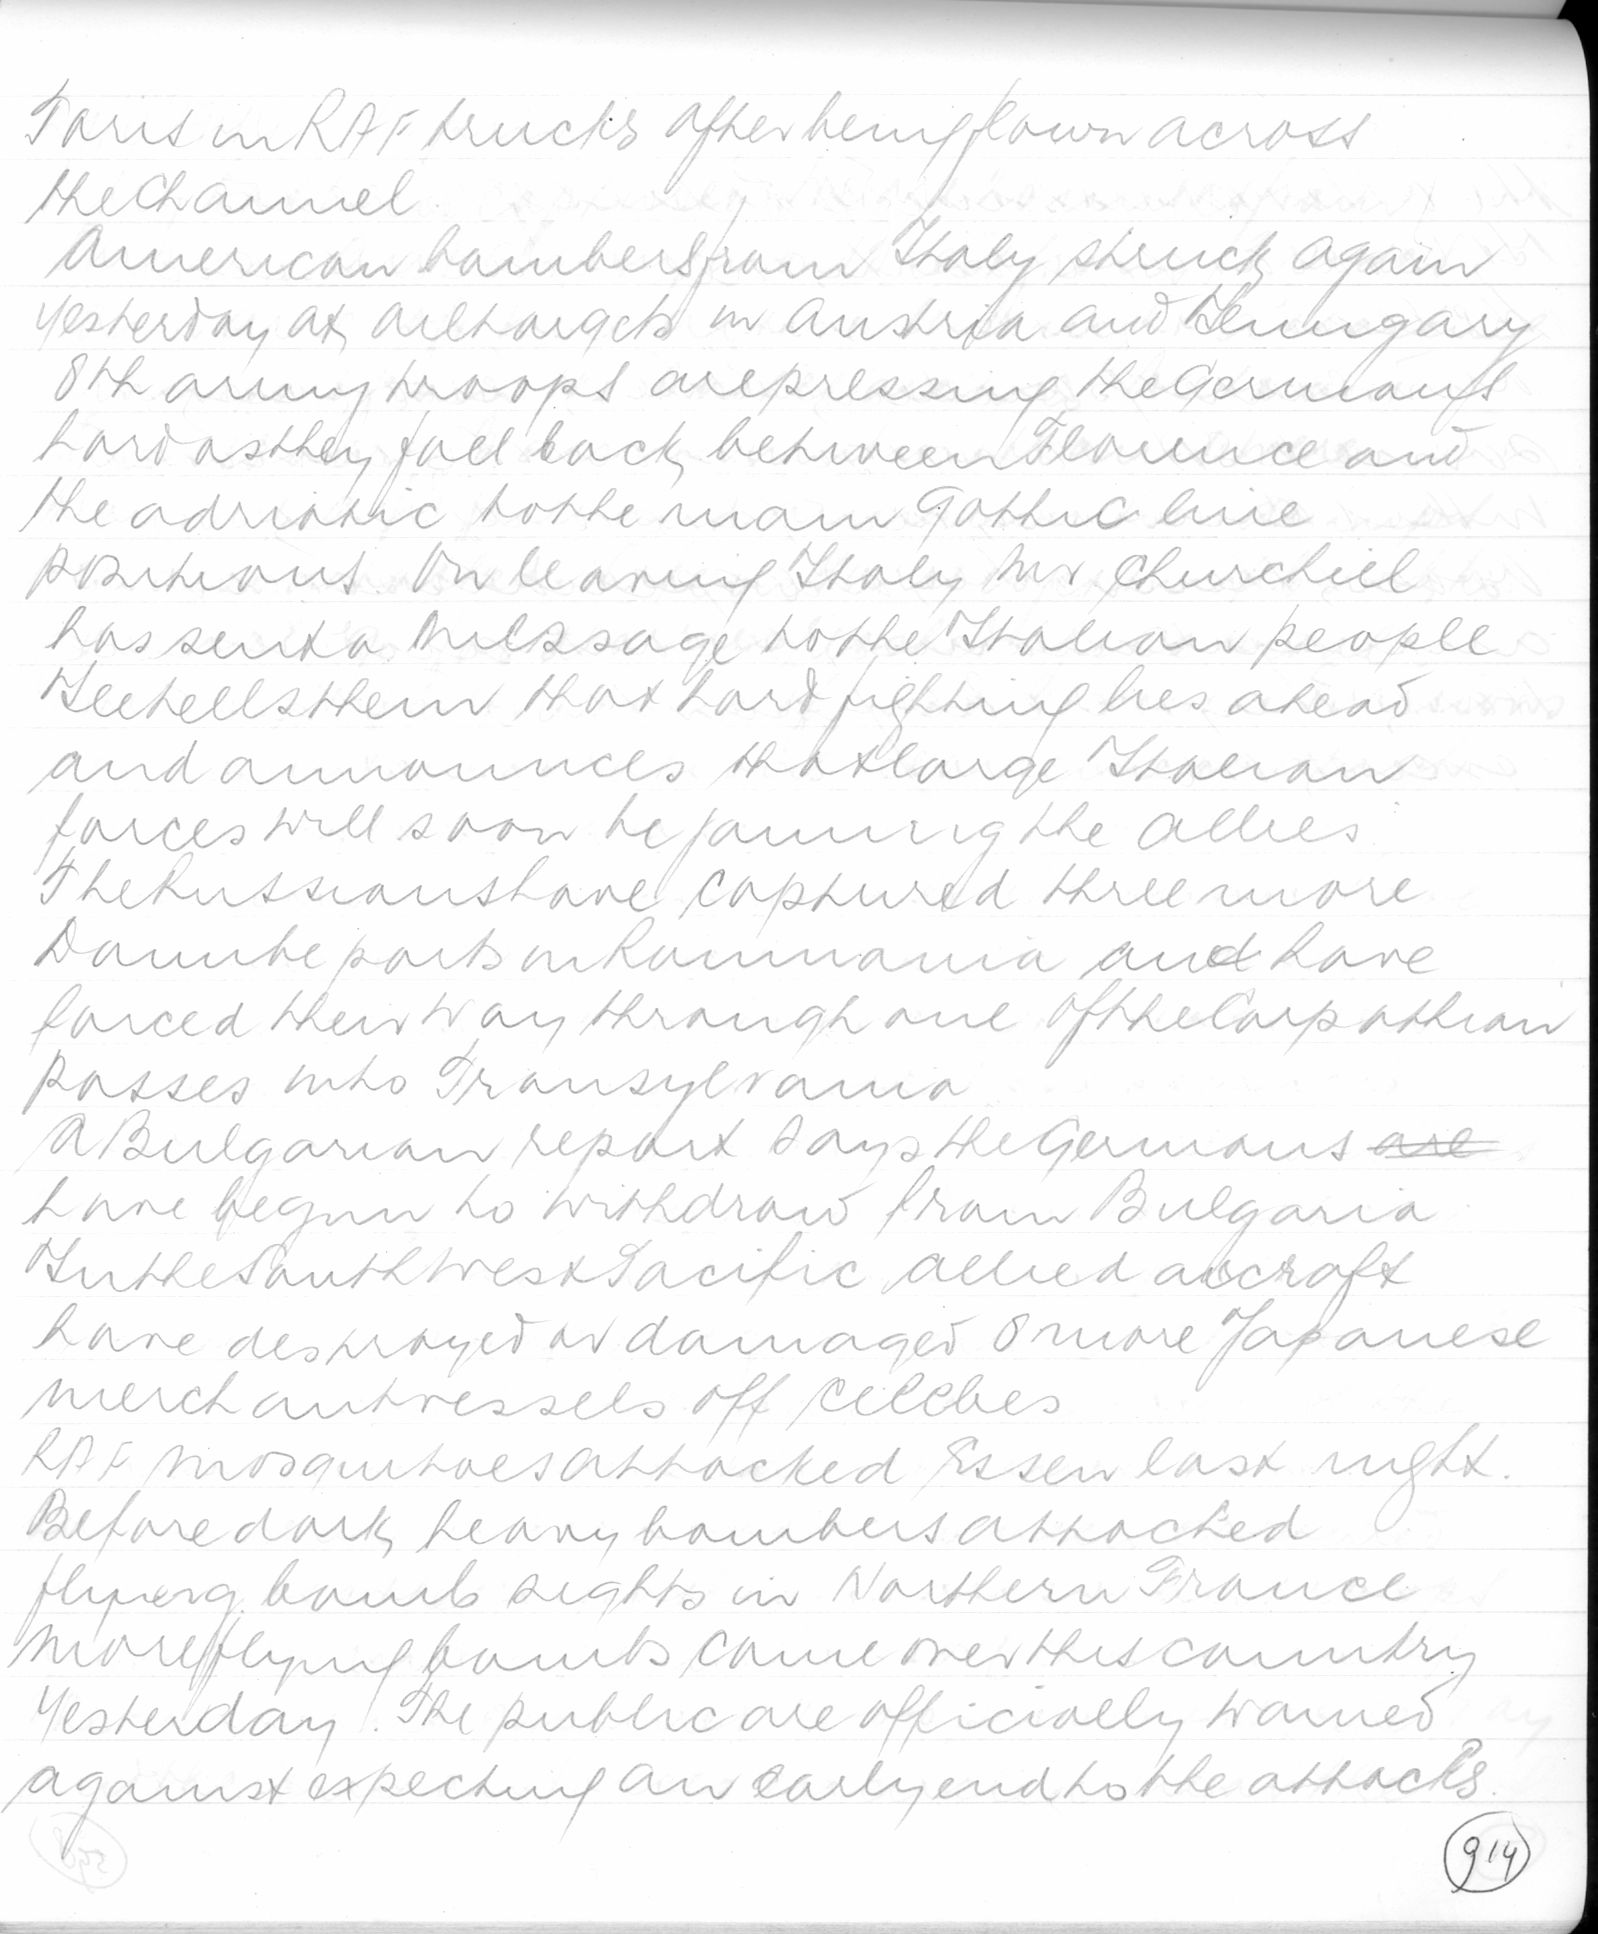 Paris in RAF trucks after being flown across
the Channel.
American bombers from Italy struck again
yesterday at oil targets in Austria and Hungary
8th army troops are pressing the Germans
hard as they fall back between Florence and
the adriatic to the main Gothic line
positions. On leaving Italy Mr. Churchill
has sent a Message to the Italian people
He tells them that hard fighting lies ahead
and announces that large Italian
forces will soon be joining the allies.
The Russians have captured three more
Danube ports in Roumania and have
forced their way through one of the Carpathian
passes into Transylvania
A Bulgarian report says the Germans are
have begun to withdraw from Bulgaria.
In the South West Pacific allied aircraft
have destroyed or damaged 8 more Japanese
merchant vessels off Celebes
RAF Mosquitoes attacked Essen last night.
Before dark heavy bombers attacked
flying bomb sights in Northern France
More flying bombs came over this country
yesterday. The public are officially warned
against expecting an early end to the attacks.
914